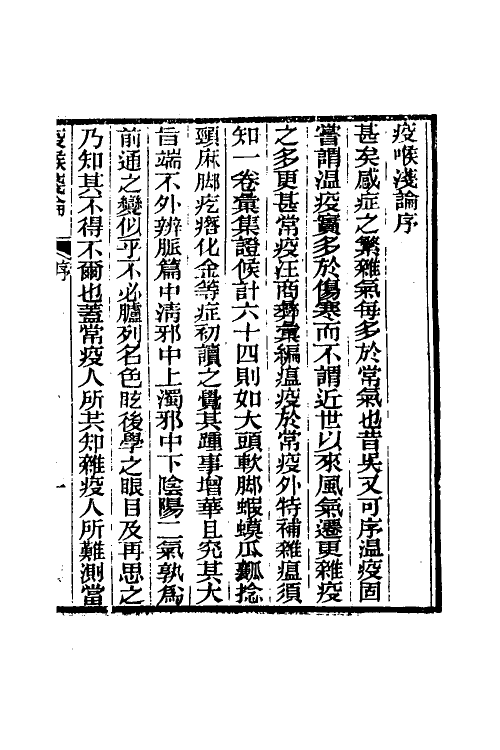 疫喉淺論序
甚矣感症之繁雜氣每多於常氣也昔吳又可序溫疫固
嘗謂溫疫實多於傷寒而不謂近世以來風氣遷更雜疫
之多更甚常疫汪商彝彙編瘟疫於常疫外特補雜瘟須
知一卷彙集證候計六十四則如大頭軟脚蝦蟆瓜瓤捻
頸麻脚疙瘩化金等症初讀之覺其踵事增華且究其大
旨端不外辨脈篇中清邪中上濁邪中下陰陽二氣孰爲
前通之變似乎不必臚列名色眩後學之眼目及再思之
乃知其不得不爾也蓋常疫人所共知雜疫人所難測當
疫喉淺論
序
一